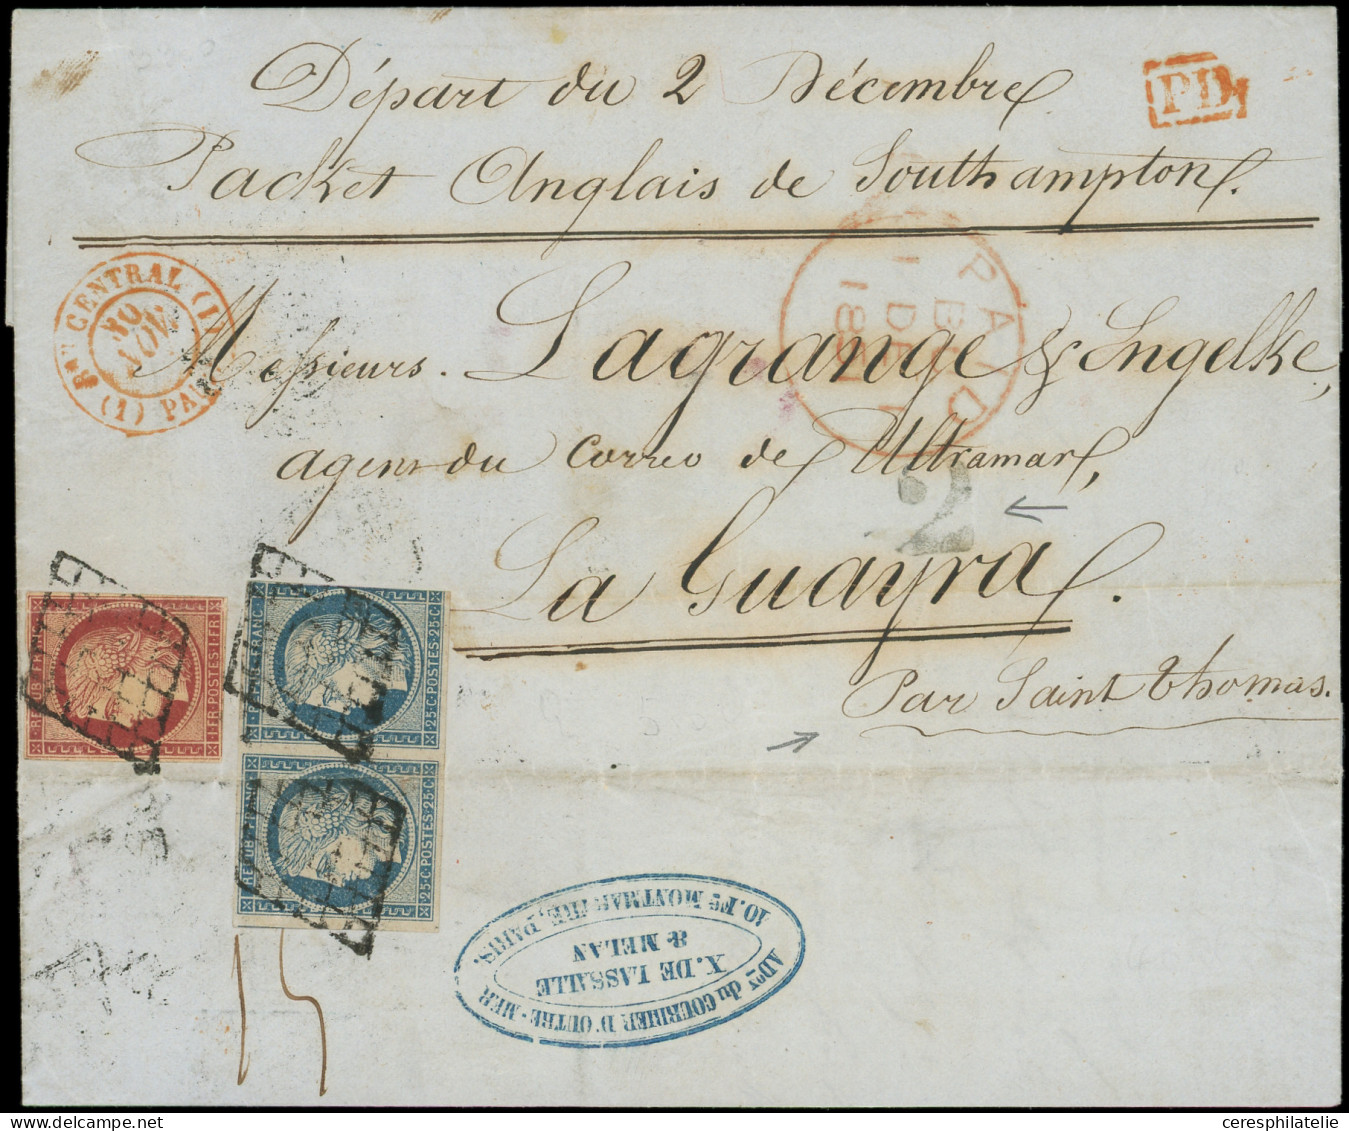 Départ du 2 Décembre
Packet Anglais de Southampton.
PD
PAID
1 DE
Bau CENTRAL (1)
30
NOV.
(1) PA
Messieurs. Lagrange & Engelke,
agent du Correo de Ultramar,
2
La Guayra.
Par Saint Thomas.
REPUB. FRANC.
1 FR. POSTES. 1 FR.
REPUB. FRANC.
25 C. POSTES. 25 C.
REPUB. FRANC.
25 C. POSTES. 25 C.
15
ADon du COURRIER D'OUTRE-MER
X. DE LASSALLE
& MELAN
10. Fg MONTMARTRE, PARIS.
ceresphilatelie / delcampe.net